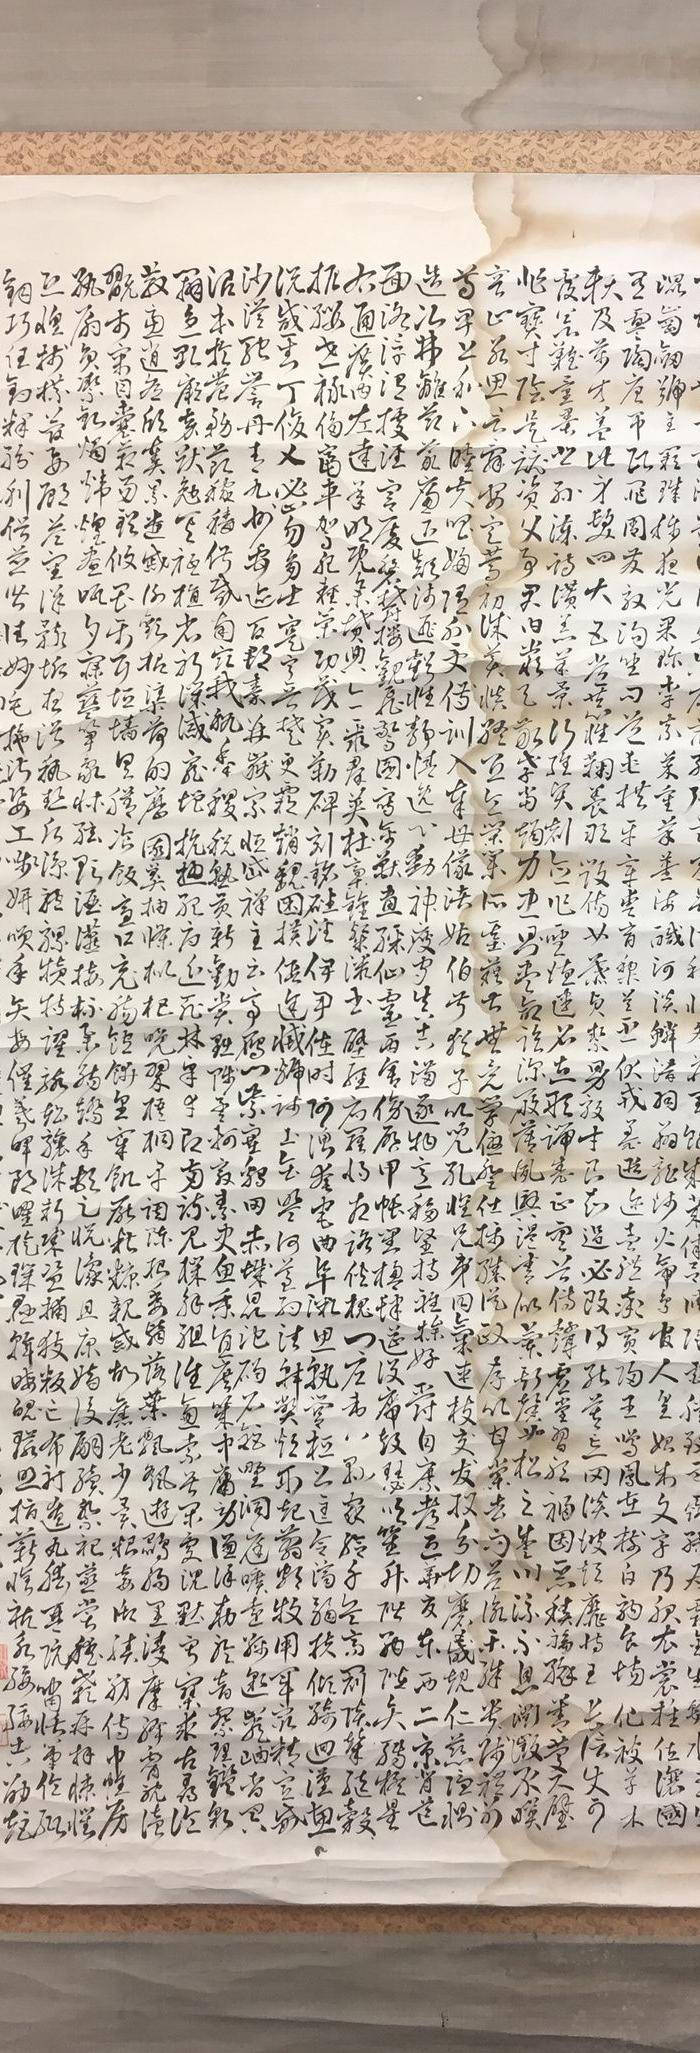 崑岡劍號巨闕珠稱夜光果珍李柰菜重芥薑海鹹河淡鱗潛羽翔龍師火帝鳥官人皇始制文字乃服衣裳推位讓國
有虞陶唐弔民伐罪周發殷湯坐朝問道垂拱平章愛育黎首臣伏戎羌遐邇壹體率賓歸王鳴鳳在樹白駒食場化被草木
賴及萬方蓋此身髮四大五常恭惟鞠養豈敢毀傷女慕貞絜男效才良知過必改得能莫忘罔談彼短靡恃己長信使可
覆器欲難量墨悲絲染詩讚羔羊景行維賢剋念作聖德建名立形端表正空谷傳聲虛堂習聽禍因惡積福緣善慶尺璧
非寶寸陰是競資父事君曰嚴與敬孝當竭力忠則盡命臨深履薄夙興溫凊似蘭斯馨如松之盛川流不息淵澄取映
容止若思言辭安定篤初誠美慎終宜令榮業所基籍甚無竟學優登仕攝職從政存以甘棠去而益詠樂殊貴賤禮別
尊卑上和下睦夫唱婦隨外受傅訓入奉母儀諸姑伯叔猶子比兒孔懷兄弟同氣連枝交友投分切磨箴規仁慈隱惻
造次弗離節義廉退顛沛匪虧性靜情逸心動神疲守真志滿逐物意移堅持雅操好爵自縻都邑華夏東西二京背芒
面洛浮渭據涇宮殿盤鬱樓觀飛驚圖寫禽獸畫綵仙靈丙舍傍啟甲帳對楹肆筵設席鼓瑟吹笙升階納陛弁轉疑星
右通廣內左達承明既集墳典亦聚群英杜稿鍾隸漆書壁經府羅將相路俠槐卿戶封八縣家給千兵高冠陪輦驅轂
振纓世祿侈富車駕肥輕策功茂實勒碑刻銘磻溪伊尹佐時阿衡奄宅曲阜微旦孰營桓公匡合濟弱扶傾綺迴漢惠
說感武丁俊乂密勿多士寔寧晉楚更霸趙魏困橫假途滅虢踐土會盟何遵約法韓弊煩刑起翦頗牧用軍最精宣威
沙漠馳譽丹青九州禹跡百郡秦并嶽宗恒岱禪主云亭雁門紫塞雞田赤城昆池碣石鉅野洞庭曠遠綿邈巖岫杳冥
治本於農務茲稼穡俶載南畝我藝黍稷稅熟貢新勸賞黜陟孟軻敦素史魚秉直庶幾中庸勞謙謹敕聆音察理鑑貌
辨色貽厥嘉猷勉其祗植省躬譏誡寵增抗極殆辱近恥林皋幸即兩疏見機解組誰逼索居閑處沈默寂寥求古尋論
散慮逍遙欣奏累遣慼謝歡招渠荷的歷園莽抽條枇杷晚翠梧桐早凋陳根委翳落葉飄颻遊鵾獨運凌摩絳霄耽讀
翫市寓目囊箱易輶攸畏屬耳垣牆具膳飡飯適口充腸飽飫烹宰飢厭糟糠親戚故舊老少異糧妾御績紡侍巾帷房
紈扇圓潔銀燭煒煌晝眠夕寐藍笋象床絃歌酒讌接杯舉觴矯手頓足悅豫且康嫡後嗣續祭祀蒸嘗稽顙再拜悚懼
恐惶牋牒簡要顧答審詳骸垢想浴執熱願涼驢騾犢特駭躍超驤誅斬賊盜捕獲叛亡布射遼丸嵇琴阮嘯恬筆倫紙
鈞巧任釣釋紛利俗並皆佳妙毛施淑姿工顰妍笑年矢每催曦暉朗曜璇璣懸斡晦魄環照指薪修祜永綏吉劭矩